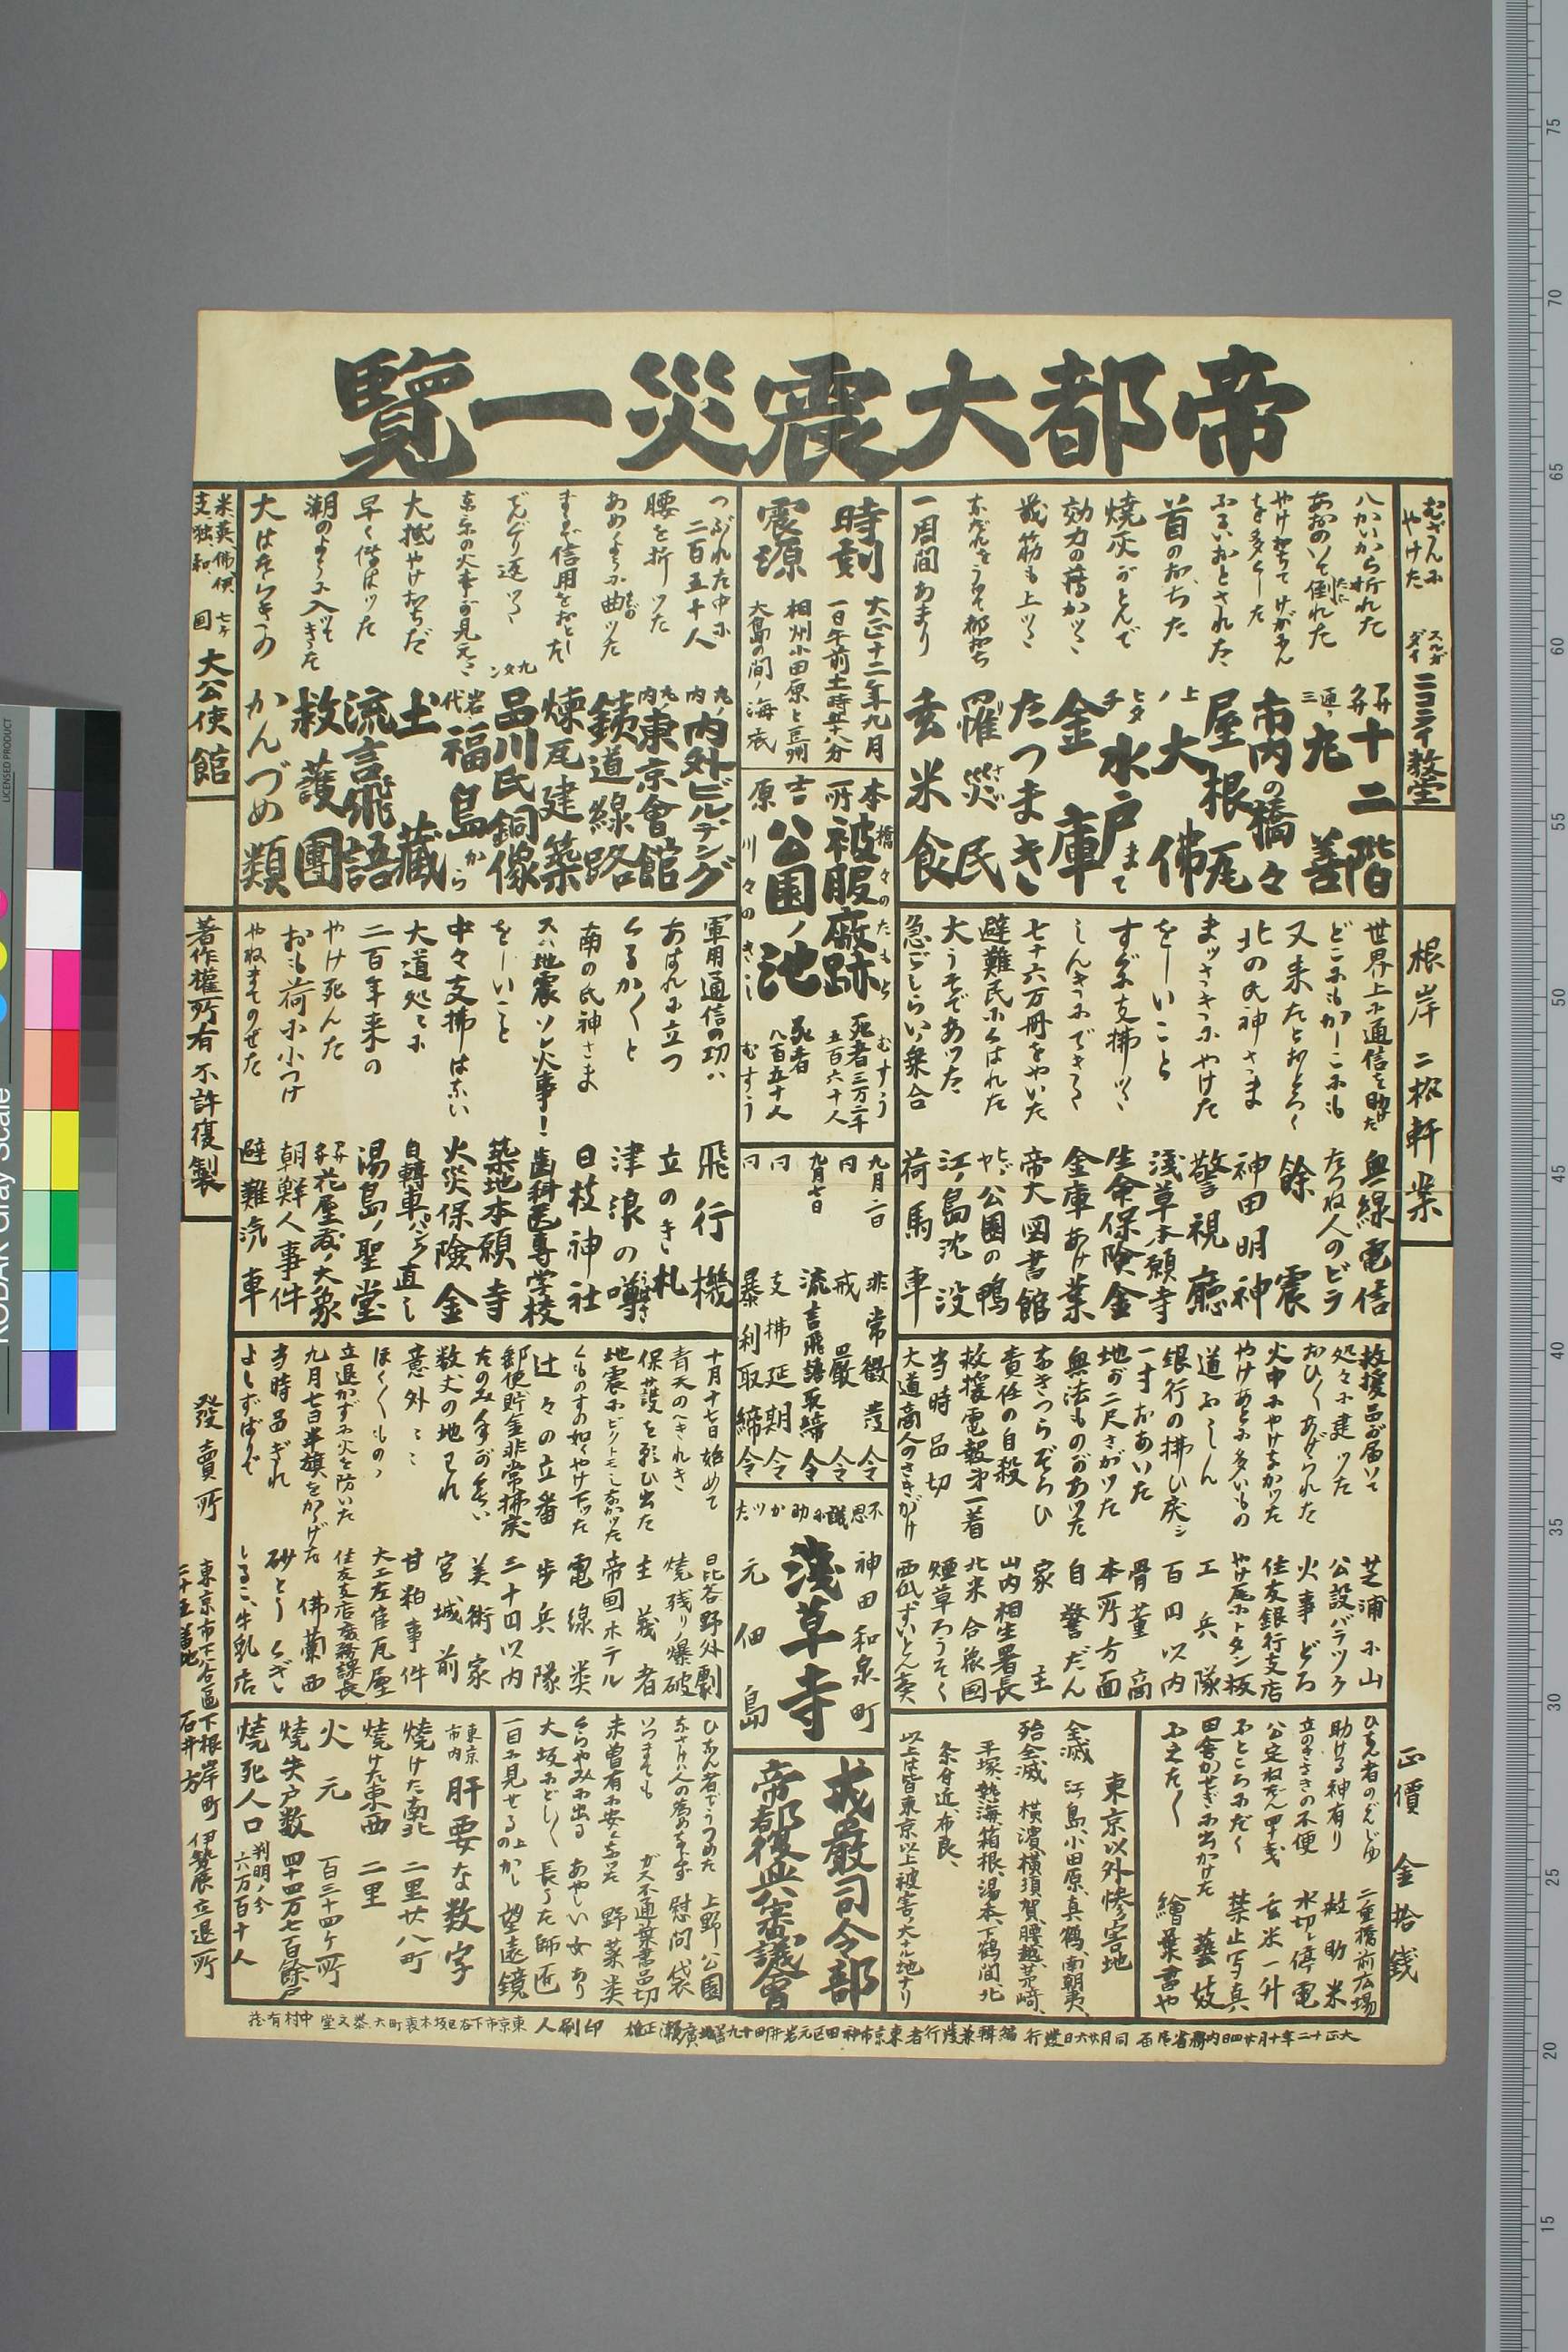 帝都大震災一覧
むざんにやけた スルガダイ ニコライ教堂
根岸 二松軒案
正價 金拾銭
八かいから折れた 浅草 十二階
あおのいて倒れた 通三 丸善
やけ落ちてけが人を多くした 市内の橋々
ふるいおとされた 屋根瓦
首のおちた 上ノ 大佛
焼灰がとんで ヒタチ 水戸まで
効力の薄かつた 金庫
幾筋も上つた たつまき
一周間あまり 玄米食
罹災民
時刻 大正十二年九月一日午前十一時五十八分
震源 相州小田原と豆州大島の間ノ海底
本所 被服廠跡 死者三万二千五百六十人
吉原 公園ノ池 死者八百五十人
橋々のたもと むすう
川々のきし むすう
九月二日 非常徴発令
同 戒厳令
九月七日 流言飛語取締令
同 支拂延期令
同 暴利取締令
不思議に助かツた
神田和泉町
浅草寺
元佃島
戒嚴司令部
帝都復興審議會
つぶれた中に二百五十人 丸ノ内 内外ビルヂング
腰を折ツた 丸ノ内 東京會館
あめのように曲ツた 鉄道線路
まるで信用をおとした 煉瓦建築
でんぐり返つた 九タン 品川氏銅像
東京の火事が見えた 岩代 福島から
大抵やけおちた 土藏
早く傳はツた 流言飛語
潮のように入ツてきた 救護團
大はたらきの かんづめ類
米英佛伊支独和 七ヶ国 大公使館
世界上に通信を助けた 無線電信
どこにもかしこにも たづね人のビラ
又来たとおどろく 餘震
北の氏神さま 神田明神
まッさきにやけた 警視廳
をしいこと 浅草本願寺
すぐに支拂つた 生命保険金
しんきにできる 金庫あけ業
七十六万冊をやいた 帝大図書館
避難民にくはれた ヒビヤ公園の鴨
大うそであツた 江ノ島沈没
急ごしらい乗合 荷馬車
軍用通信の功ハ 飛行機
あはれに立つ 立のき札
くるかくると 津浪の噂
南の氏神さま 日枝神社
スハ地震ソレ火事! 歯科医専学校
をしいこと 築地本願寺
中々支拂はない 火災保険金
大道処々に 自轉車パンク直し
二百年来の 湯島ノ聖堂
やけ死んた 浅草花屋敷ノ大象
おも荷に小つけ 朝鮮人事件
やねまでのせた 避難汽車
著作權所有 不許復製
救援品が届いて 芝浦に山
処々に建ツた 公設バラック
おひ\/あげられた 火事どろ
火中にやけなかッた 住友銀行支店
やけあとに多いもの やけ瓦トタン板
道ぶしん 工兵隊
銀行の拂ひ戻シ 百円以内
一寸おあいた 骨董商
地が二尺さがツた 本所方面
無法ものがあツた 自警だん
なきつらぞろひ 家主
責任の自殺 山内相生署長
救援電報第一着 北米合衆国
当時品切 煙草ろうそく
大道商人のさきがけ 西瓜ずいとん賣
十月十七日始めて 日比谷野外劇
青天のへきれき 焼残り爆破
保護を願ひ出た 主義者
地震にビクトモしなかツた 帝国ホテル
くものすの如くやけ下ツた 電線類
辻々の立番 歩兵隊
郵便貯金非常拂戻 三十円以内
たのみ手が多い 美術家
数丈の地われ 宮城前
意外 甘粕事件
ほく\/もの 大工左官瓦屋
立退かずに火を防いた 住友支店庶務課長
九月七日半旗をかゝげた 佛蘭西
当時品ぎれ 砂とう くぎ
よしずばりで しるこ、牛乳店
ひなん者のぞんじゆ 二重橋前広場
助ける神有り 救助米
立のきさきの不便 水切レ停電
公定ねだん四十銭 玄米一升
ふところにだく 禁止写真
田舎かせぎに出かけた 藝妓
ふえた\/ 繪葉書や
東京以外惨害地
全滅 江ノ島、小田原、真鶴、南朝夷、
殆全滅 横濱、横須賀、腰越、茅崎、平塚、熱海、箱根、湯本、下鶴間、北条付近、布良、
以上は皆東京以上被害ノ大ナル地ナリ
ひなん者でうづめた 上野公園
なさけハ人の為めならず 慰問袋
いつまでも ガス不通葉書品切
未曽有に安くなつた 野菜类
くらやみに出る あやしい女あり
大坂にどし\/ 長うた師匠
一目に見せるの上かし 望遠鏡
東京市内 肝要な数字
焼けた南北 二里廿八町
焼けた東西 二里
火元 一百三十四ヶ所
焼失戸数 四十四万七百餘戸
焼死人口 判明ノ分 六万百十人
發賣所 東京市下谷區下根岸町二十五番地 石井方 伊勢辰立退所
大正十二年十月廿四日内務省届済 同月廿六日発行 編輯兼発行者 東京市神田区元岩井町四十九番地 廣瀬正雄 印刷人 東京市下谷区坂本裏町大 恭文堂 中村有茂